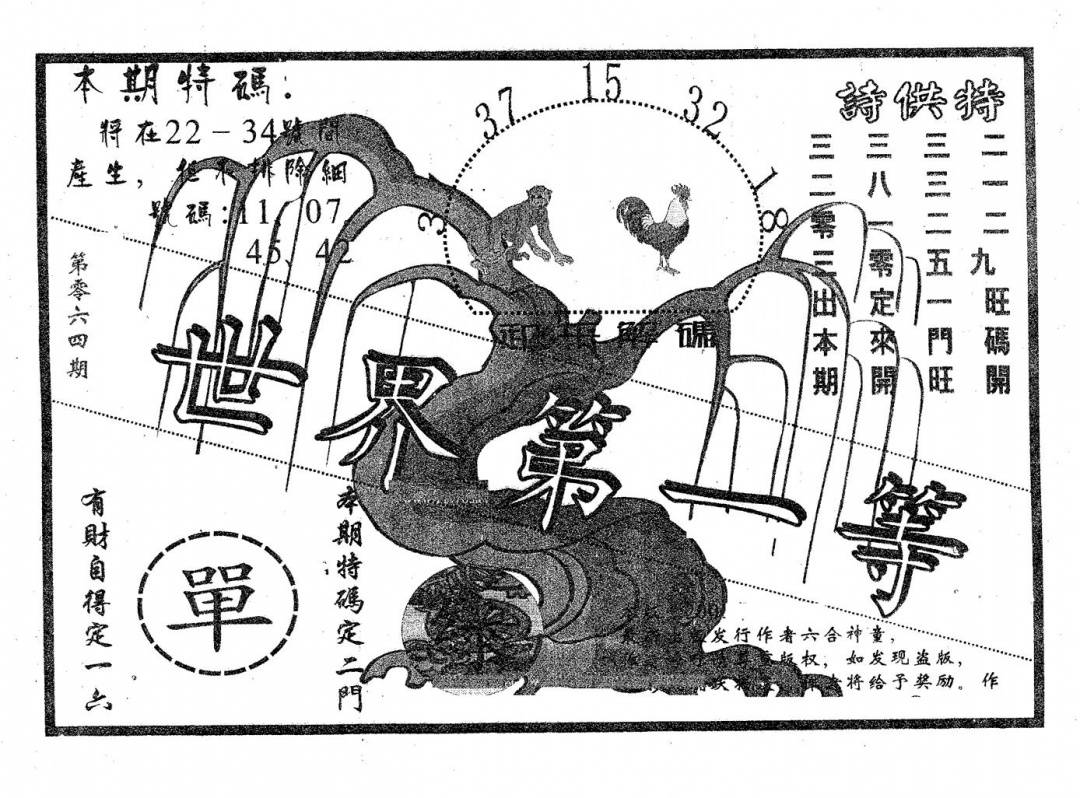 本期特碼：
將在22－34號間
產生，但不排除細
號碼：11、07、
45、42
37
15
32
18
詩供特
二一二九旺碼開
三三二五一門旺
三八一零定來開
三二零三出本期
第零六四期
解碼
世界第一等
有財自得定一六
單
本期特碼定二門
发行作者六合神童，
版权，如发现盗版，
将给予奖励。作